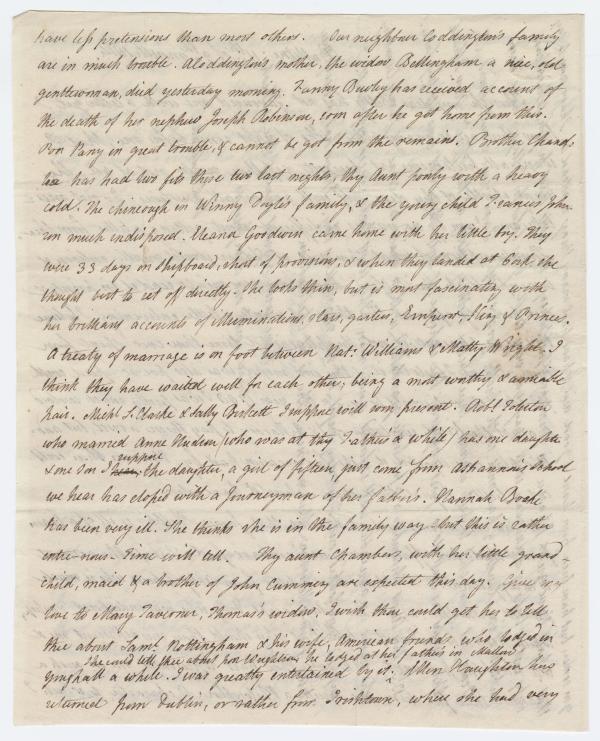 have less pretensions than most others. Our neighbour Coddington's family
are in much trouble. A Coddington's mother, the widow Bellingham a nice, old
gentlewoman, died yesterday morning. Fanny Busby has received account of
the death of her nephew Joseph Robinson, soon after he got home from this.
Poor Parry in great trouble, & cannot be got from the remains. Brother Chand-
lee has had two fits these two last nights, thy Aunt poorly with a heavy
cold. The chincough in Winny Doyle's family, & the young child Francis John-
son much indisposed. Eleanor Goodwin came home with her little boy. They
were 33 days on shipboard, short of provisions, & when they landed at Cork she
thought best to set off directly. She looks thin, but is most fascinating with
her brilliant accounts of illuminations, stars, garters, Emperor, King & Princes.
A treaty of marriage is on foot between Nat: Williams & Matty Wright. I
think they have waited well for each other; being a most worthy & amiable
pair. Michl. L. Clarke & Sally Birkett I suppose will soon present. Robt.
who married Anne Hudson (who was at thy Father's a while) has one daughter
& one son I suppose the daughter, a girl of fifteen, just come from school,
we hear has eloped with a Journeyman of her father's. Hannah
has been very ill. She thinks she is in the family way but this is rather
entre-nous. Time will tell. Thy aunt Chambers, with her little grand-
child, maid & a brother of John Cumming are expected this day. Give my
love to Mary Taverner, Thomas's widow, I wish thou could get her to tell
thee about Saml. Nottingham & his wife, American friends, who lodged in
She could tell thee about he lodged at her father's in Mallow
Youghall a while. I was greatly entertained by it. Allen Houghton has
returned from Dublin, or rather from Irishtown, where she had very